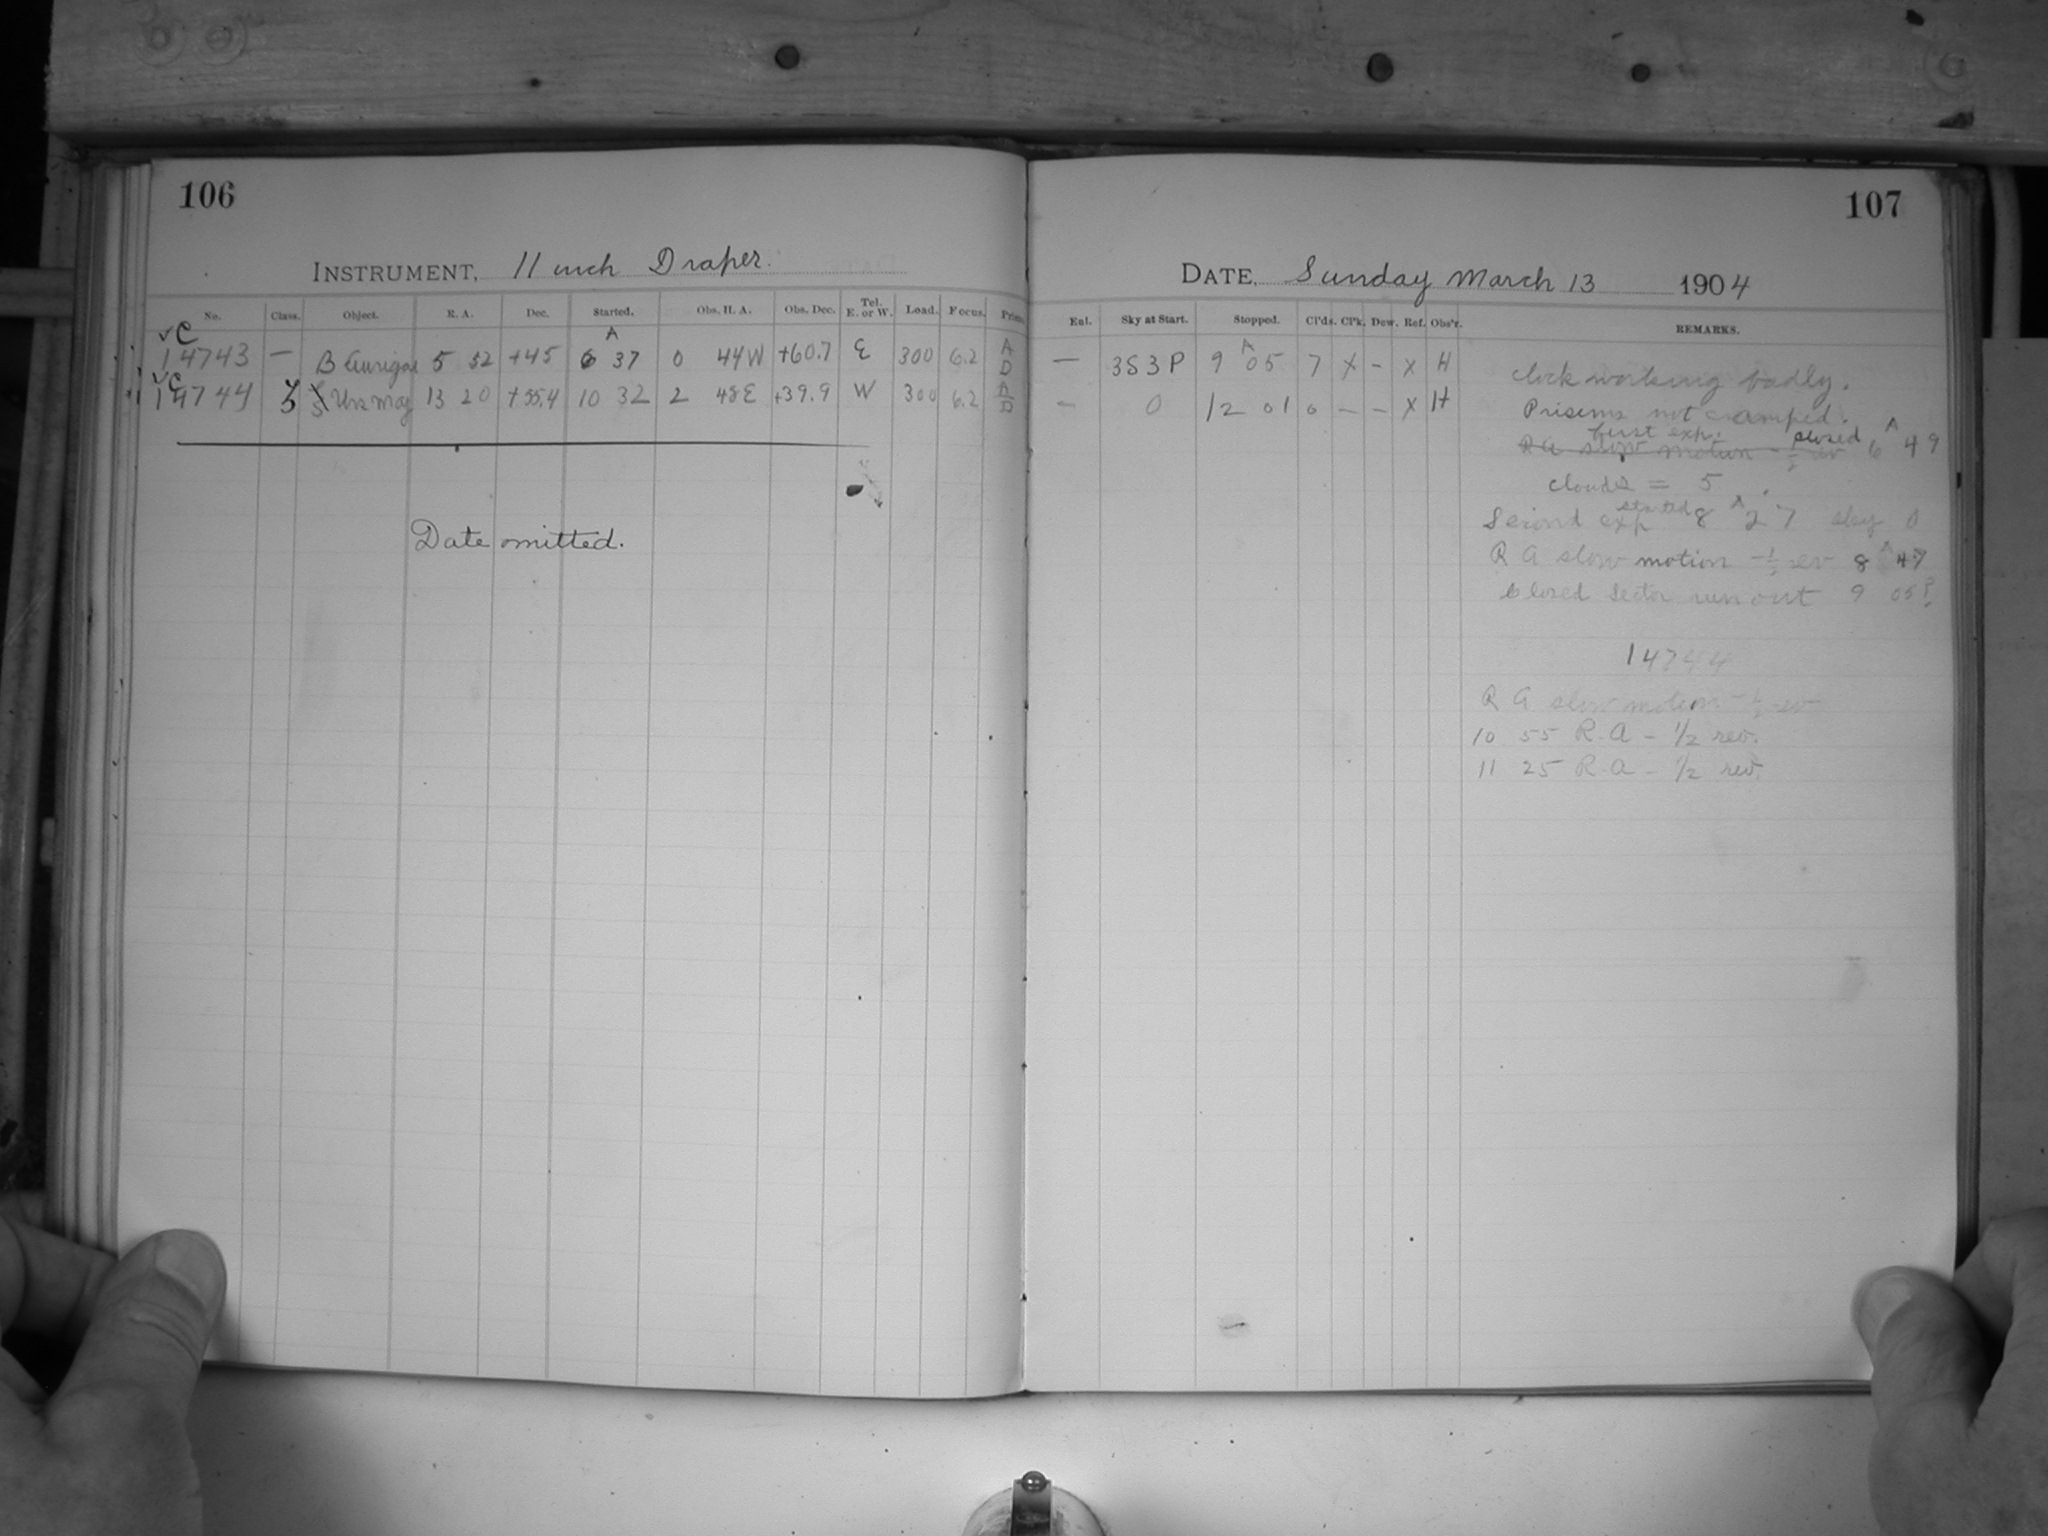 106
INSTRUMENT, 11 inch Draper.
No. Class. Object. R. A. Dec. Started. Obs. H. A. Obs. Dec. Tel. E. or W. Load. Focus. Prism
C A
14743 — B Aurigae 5 52 +45 6 37 0 44W +60.7 E 300 6.2 A D
C
14744 Urs Maj 13 20 +55.4 10 32 2 48E +39.9 W 300 6.2 A D
Date omitted.
107
DATE, Sunday March 13 1904
Enl. Sky at Start. Stopped. Cl'ds. Cl'k. Dew. Ref. Obs'r. REMARKS.
— 3S3P 9 A 05 7 X – X H
– 0 12 01 0 – – X H
Clock working badly.
Prisms not cramped.
first exp. closed 6 A 49
RA slow motion – 1/2 rev
clouds = 5
Second exp started 8 A 27 sky 0
R A slow motion – 1/2 rev 8 A 47
Closed Sector run out 9 05?
14744
R A slow motion – 1/2 rev
10 55 R.A – 1/2 rev.
11 25 R.A – 1/2 rev.